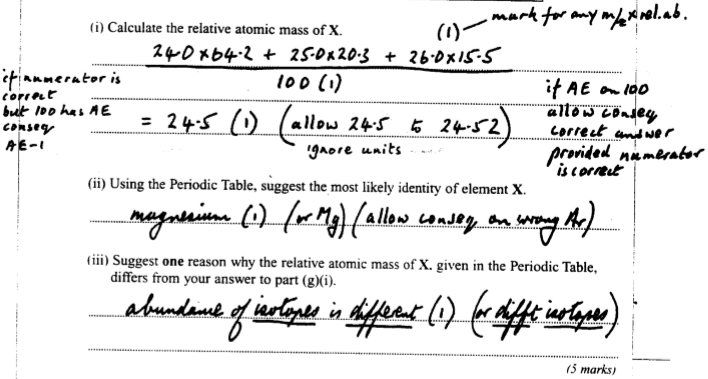 (1) — mark for any m/z x rel. ab.
(i) Calculate the relative atomic mass of X.
24.0 x 64.2 + 25.0 x 20.3 + 26.0 x 15.5
100 (1)
if numerator is
correct
but 100 has AE
conseq
AE-1
= 24.5 (1) (allow 24.5 to 24.52)
ignore units
if AE on 100
allow conseq
correct answer
provided numerator
is correct
(ii) Using the Periodic Table, suggest the most likely identity of element X.
magnesium (1) (or Mg) (allow conseq on wrong Ar)
(iii) Suggest one reason why the relative atomic mass of X. given in the Periodic Table,
differs from your answer to part (g)(i).
abundance of isotopes is different (1) (or difft isotopes)
(5 marks)